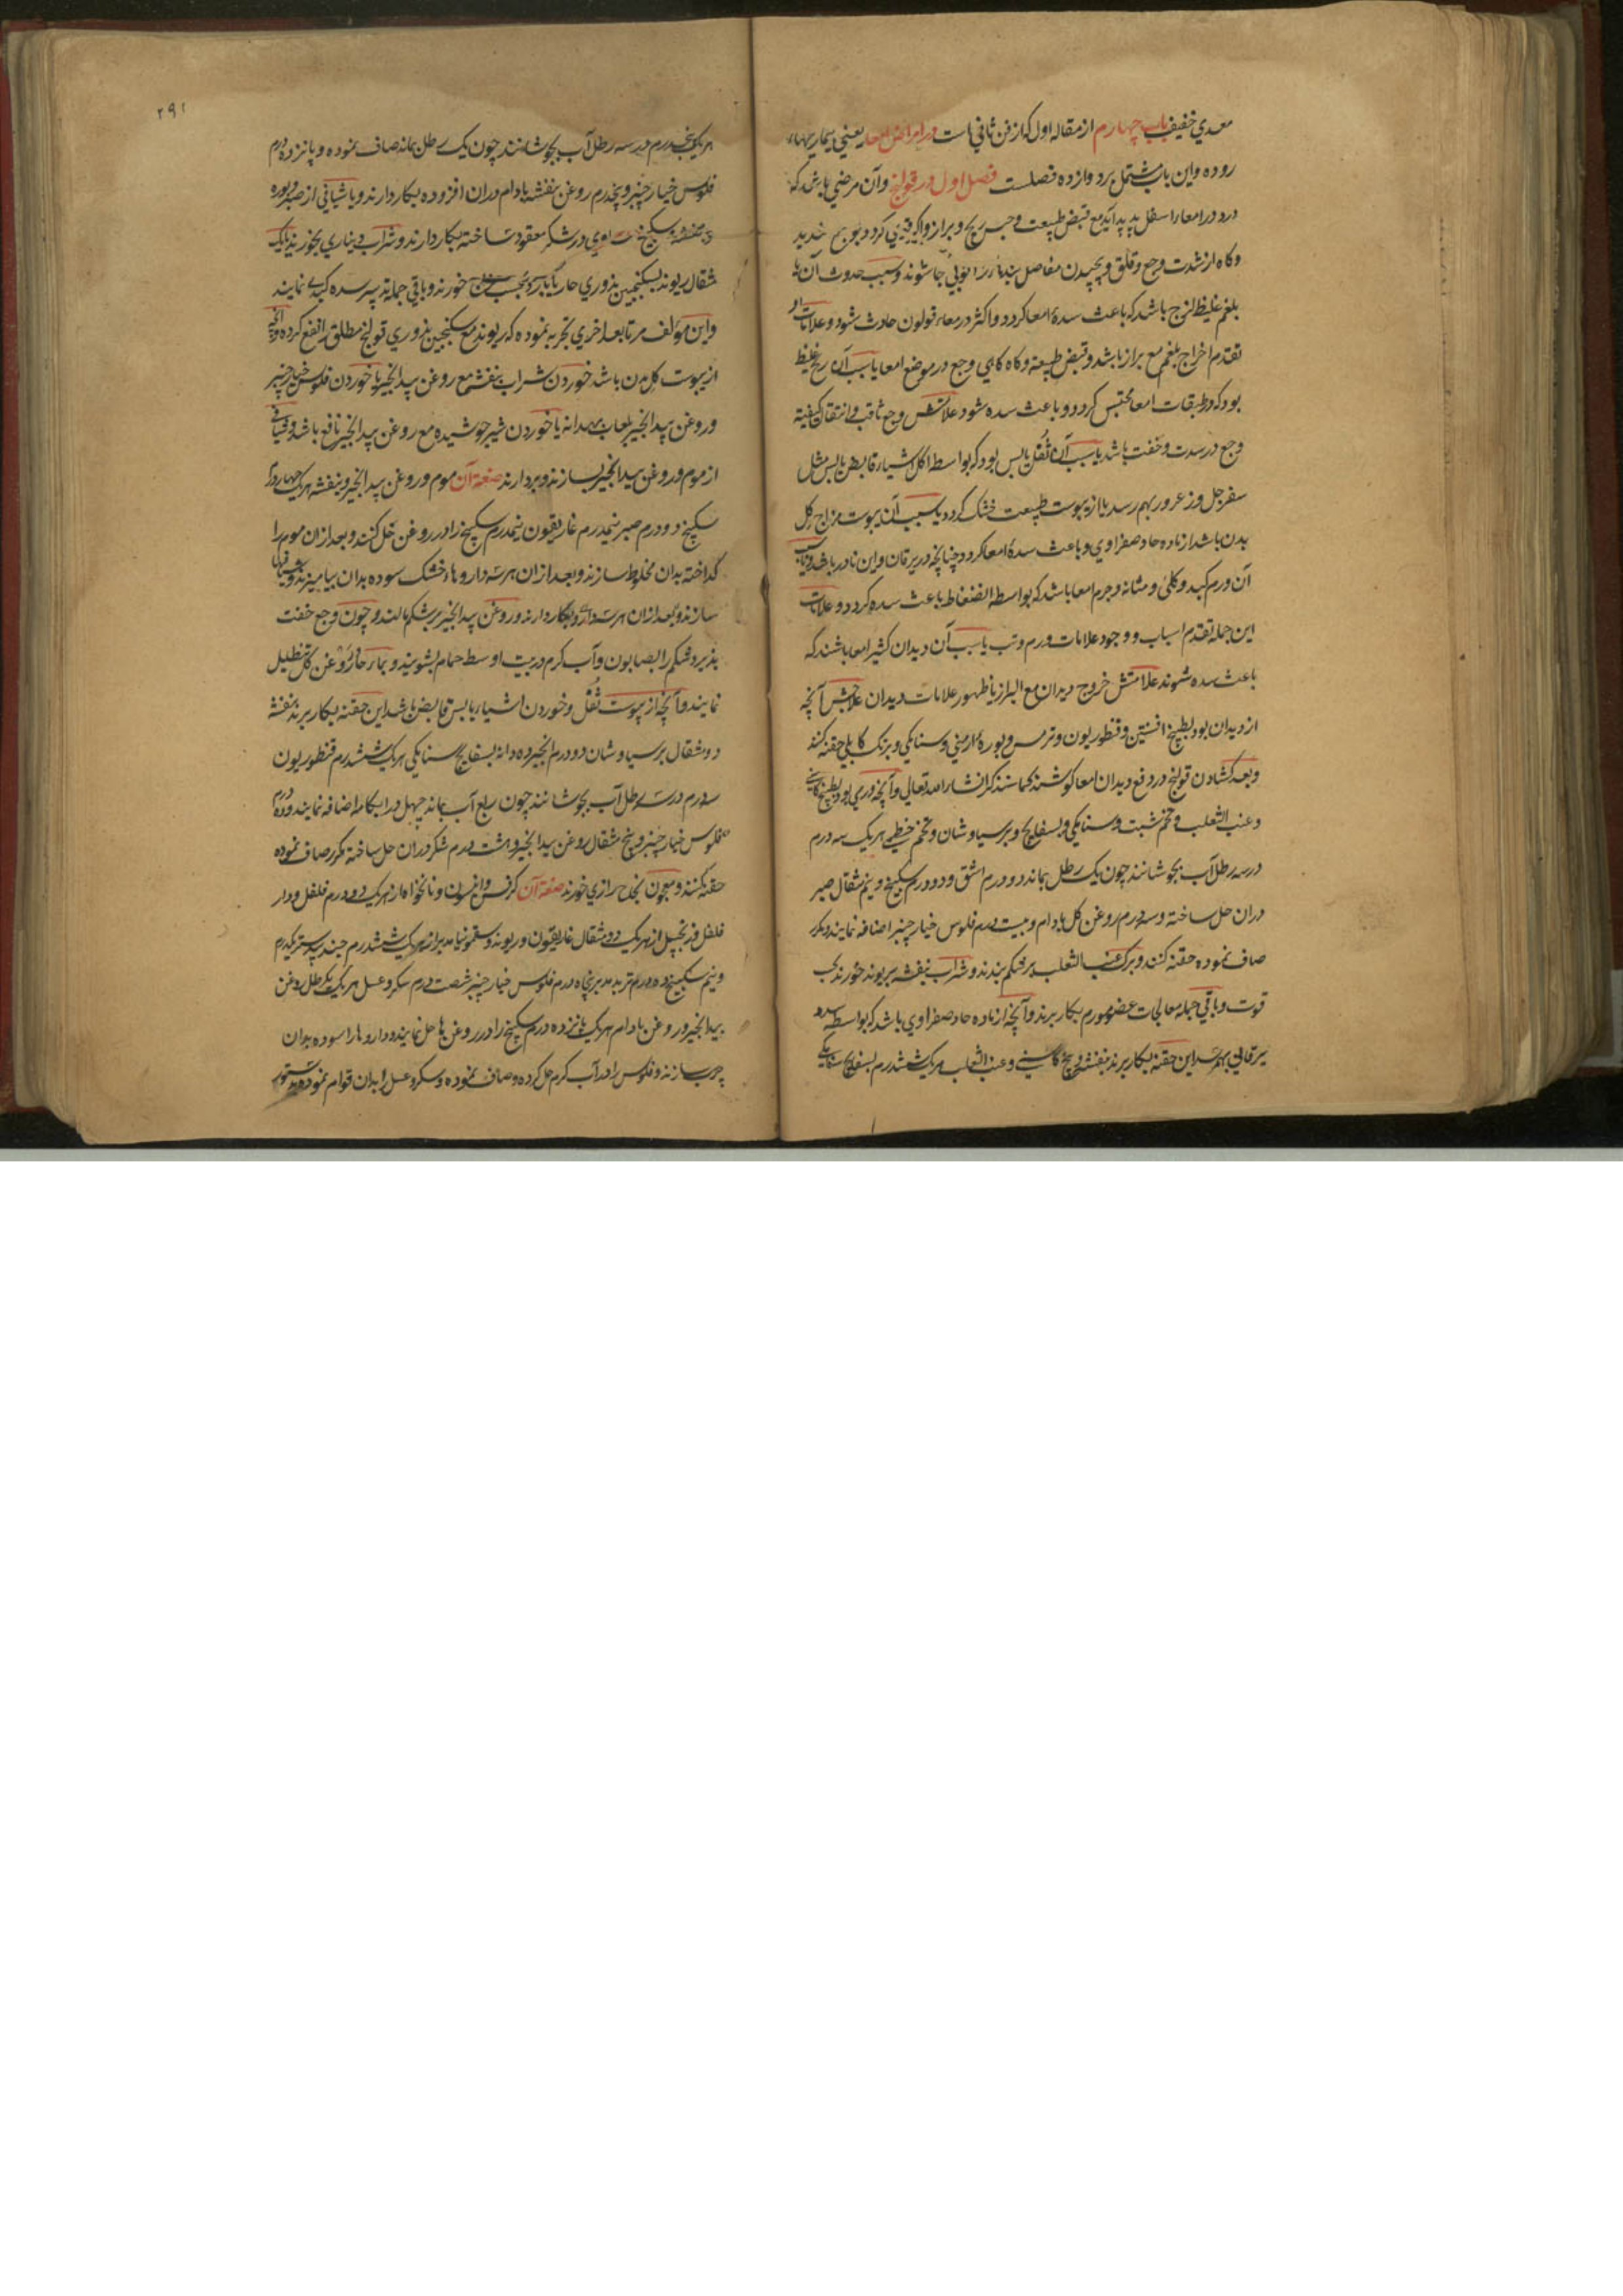 معدي خفيف باب چهارم از مقاله اول که از فن ثاني است در امراض امعا يعني بيماريهاء
روده واين باب مشتمل بر دوازده فصلست فصل اول در قولنج وآن مرضي باشد که
درد در امعاء اسفل پديد آيد مع قبض طبيعت و حبس ريح و براز
وکاه از شدت وجع وقلق و پيچيدن مفاصل جا شوند وسبب حدوث آن يا
بلغم غليظ لزج باشد که باعث سدهٔ امعا کردد و اکثر در معاء قولون حادث شود و علامات او
تقدم اخراج بلغم مع براز باشد و قبض طبيعة وکاه کاهي وجع در موضع امعا يا سبب آن ريح غليظ
بود که در طبقات امعا محتبس کردد و باعث سده شود علامتش وجع ثاقب و انتقال کيفية
وجع در شدت و خفت باشد يا سبب آن ثفل يابس بود که بواسطه اکل اشياء قابض يابس مثل
سفرجل و زعرور بهم رسد يا از يبوست طبيعت خشک کردد يا سبب آن يبوست مزاج کل
بدن باشد از ماده حاد صفراوي و باعث سدهٔ امعا کردد چنانچه در يرقان واين نادر باشد ويا سبب
آن ورم کبد و کلي و مثانه و جرم امعا باشد که بواسطه انضغاط باعث سده کردد و علامات
اين جمله تقدم اسباب و وجود علامات ورم و تب يا سبب آن ديدان کثير امعا باشند که
باعث سده شوند علامتش خروج ديدان مع البراز يا ظهور علامات ديدان علاجش آنچه
از ديدان بود بطبيخ افسنتين و قنطوريون و ترمس و بورهٔ ارمني و سنا مکي و برنک کابلي حقنه کنند
وبعد کشادن قولنج در دفع ديدان امعا کوشند کما سنذکر انشاء الله تعالي و آنچه ورمي بود بطبيخ کاسني
وعنب الثعلب و تخم شبت و سنا مکي و بسفايج و پرسياوشان و تخم خطمي هر يک سه درم
در سه رطل آب بجوشانند چون يک رطل بماند دو درم اشق و دو درم سکبينج و نيم مثقال صبر
دران حل ساخته و سه درم روغن کل بادام و بيست درم فلوس خيار چنبر اضافه نمايند و مکرر
صاف نموده حقنه کنند و برک عنب الثعلب بر شکم بندند و شراب بنفشه بريوند خورند بحسب
قوت و باقي جمله معالجات عضو مورم بکار برند و آنچه از ماده حاد صفراوي باشد که بواسطه سده
يرقاني بهم رسد اين حقنه بکار برند بنفشه و بيخ کاسني و عنب الثعلب هر يک ششدرم بسفايج سنا مکي
۲۹۱
هر يک پنجدرم در سه رطل آب بجوشانند چون يک رطل بماند صاف نموده و پانزده درم
فلوس خيار چنبر و پنجدرم روغن بنفشه بادام دران افزوده بکار دارند و يا شيافي از صبر و بوره
و بنفشه و سکبينج مساوي در شکر معقود ساخته بکار دارند و شراب ديناري بخورند يا يک
مثقال ريوند بسکنجبين بزوري حار يا بارد بحسب مزاج خورند و باقي جمله تدبير سده کبدي نمايند
واين مؤلف مرتا بعد اخري تجربه نموده که ريوند مع سکنجبين بزوري قولنج مطلق را نفع کرده و آنچه
از يبوست کل بدن باشد خوردن شراب بنفشه مع روغن بيد انجير يا خوردن فلوس خيار چنبر
وروغن بيد انجير بلعاب بهدانه يا خوردن شير جوشيده مع روغن بيد انجير نافع باشد و شيافي
از موم و روغن بيد انجير بسازند و بردارند صفة آن موم و روغن بيد انجير و بنفشه هر يک چهار درم
سکبينج دو درم صبر نيمدرم غاريقون نيمدرم سکبينج را در روغن حل کنند و بعد ازان موم را
کداخته بدان مخلوط سازند و بعد ازان هر سه داروهاء خشک سوده بدان بياميزند و شيافها
سازند و بعد ازان هر سه بکار دارند و روغن بيد انجير بر شکم مالند و چون وجع خفت
پذيرد شکم را بصابون و آب کرم در بيت اوسط حمام بشويند و بماء حار و روغن کل تنطيل
نمايند و آنچه از يبوست ثفل و خوردن اشياء يابس قابض باشد اين حقنه بکار برند بنفشه
دو مثقال پرسياوشان دو درم انجير ده دانه بسفايج سنا مکي هر يک ششدرم قنطوريون
سه درم در سه رطل آب بجوشانند چون ربع آب بماند چهل درم آبکامه اضافه نمايند و ده درم
فلوس خيار چنبر و پنج مثقال روغن بيد انجير و هشت درم شکر دران حل ساخته مکرر صاف نموده
حقنه کنند و معجون نجاح رازي خورند صفة آن کرفس و انيسون و نانخواه از هر يک دو درم فلفل و دار
فلفل و زنجبيل از هر يک دو مثقال غاريقون و ريوند و سقمونيا مدبر از هر يک ششدرم جند بيدستر يکدرم
ونيم سکبينج ده درم تربد مدبر پنجاه درم فلوس خيار چنبر شصت درم سکر و عسل هر يک يکرطل روغن
بيد انجير و روغن بادام هر يک پانزده درم سکبينج را در روغن ها حل نمايند و داروها را سوده بدان
چرب سازند و فلوس را در آب کرم حل کرده و صاف نموده و سکر و عسل را بدان قوام نموده بدستور